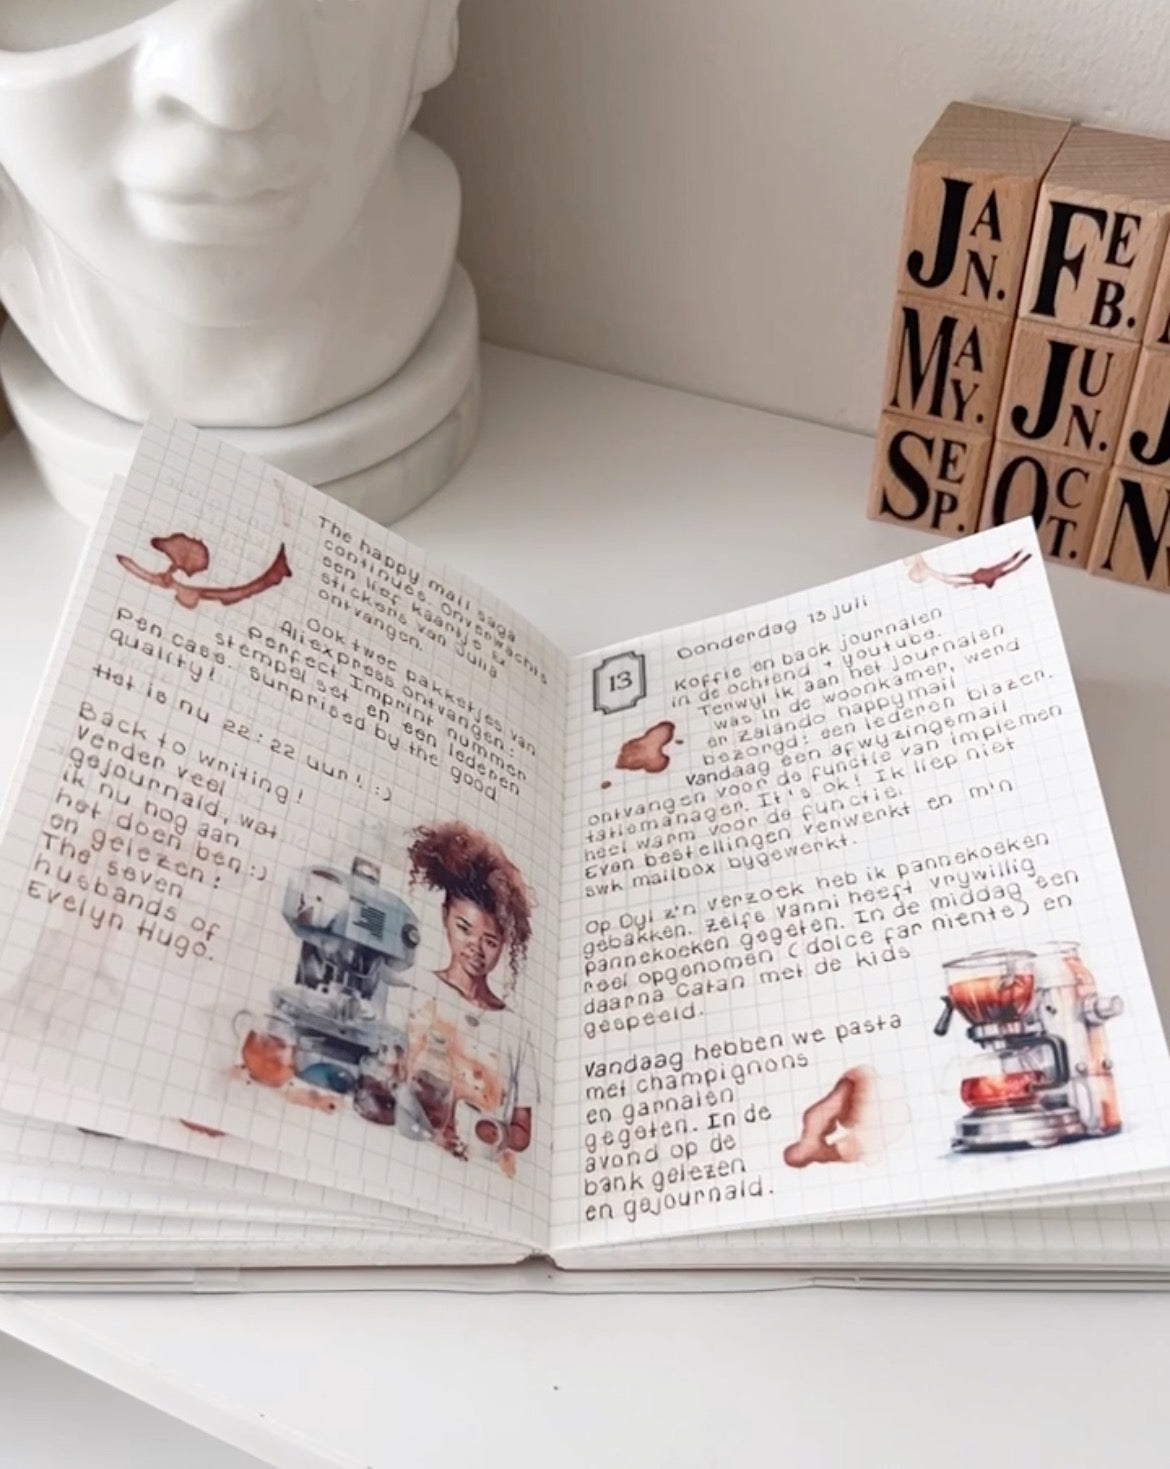 The happy mail saga
continues. Onverwachts
een lief kaartje &
stickers van Julia
ontvangen.
Ook twee pakketjes van
Aliexpress ontvangen:
Perfect Imprint nummer
stempel set en een lederen
pen case. Surprised by the good
quality!
Het is nu 22:22 uur! :)
Back to writing!
Verder veel
gejournald, wat
ik nu nog aan
het doen ben :)
en gelezen:
The seven
husbands of
Evelyn Hugo.
Donderdag 13 juli
13
Koffie en back journalen
in de ochtend + youtube.
Terwijl ik aan het journalen
was in de woonkamer, werd
er Zalando happymail
bezorgd: een lederen blazer.
Vandaag een afwyzingsmail
ontvangen voor de functie van implemen
tatiemanager. It's ok! Ik liep niet
heel warm voor de functie.
Even bestellingen verwerkt en m'n
swk mailbox bygewerkt.
Op Dyl z'n verzoek heb ik pannekoeken
gebakken. Zelfs Vanni heeft vrywillig
pannekoeken gegeten. In de middag een
reel opgenomen (dolce far niente) en
daarna Catan met de kids
gespeeld.
Vandaag hebben we pasta
met champignons
en garnalen
gegeten. In de
avond op de
bank gelezen
en gejournald.
JAN.
FEB.
MAY.
JUN.
J
SEP.
OCT.
N